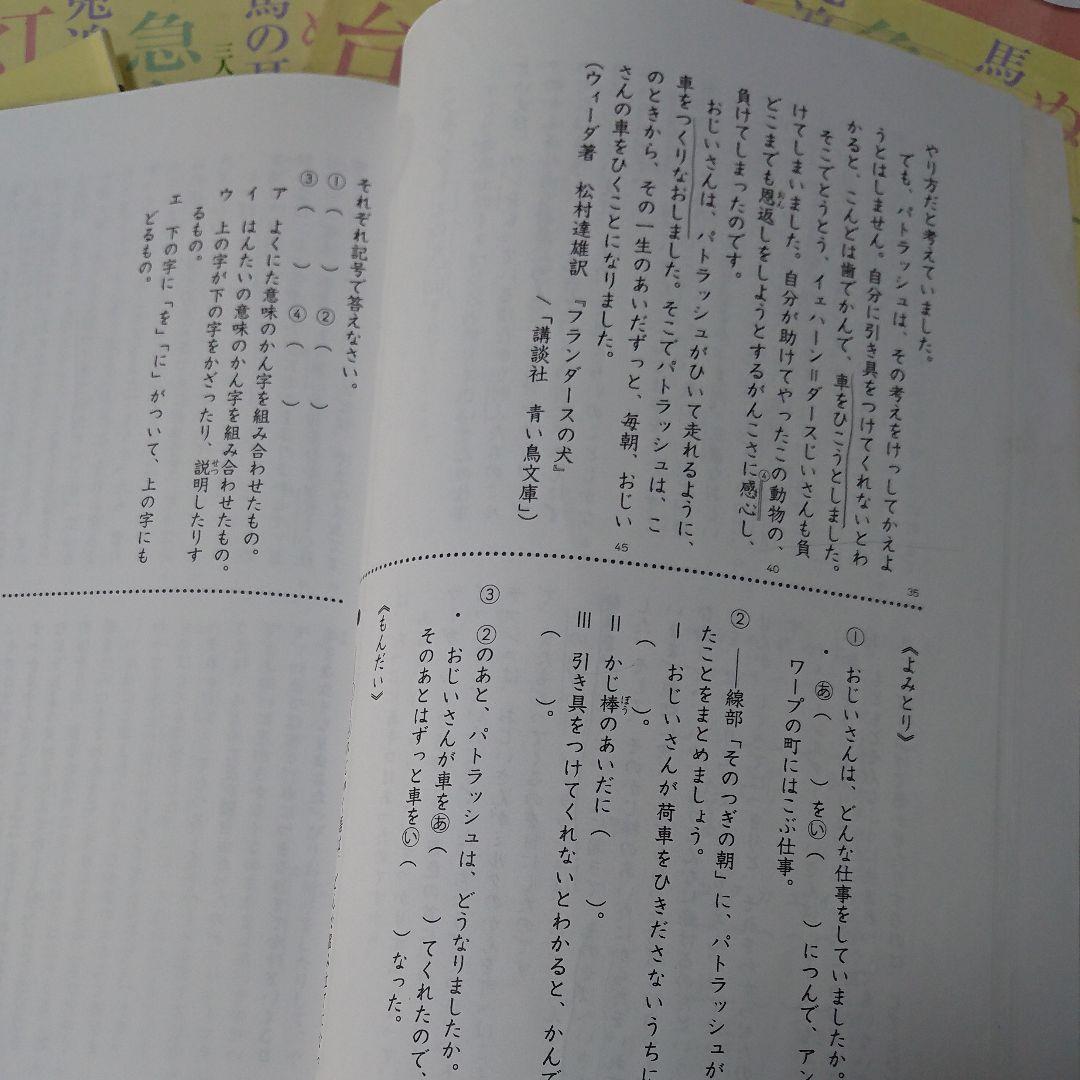 やり方だと考えていました。
でも、パトラッシュは、その考えをけっしてかえよ
うとはしません。自分に引き具をつけてくれないとわ
かると、こんどは歯でかんで、車をひこうとしました。
そこでとうとう、イェハーン＝ダースじいさんも負
けてしまいました。自分が助けてやったこの動物の、
どこまでも恩返しをしようとするがんこさに感心し、
おん
④
負けてしまったのです。
おじいさんは、パトラッシュがひいて走れるように、
車をつくりなおしました。そこでパトラッシュは、こ
のときから、その一生のあいだずっと、毎朝、おじい
さんの車をひくことになりました。
（ウィーダ著　松村達雄訳　『フランダースの犬』
／「講談社　青い鳥文庫」）
35
40
45
《よみとり》
① おじいさんは、どんな仕事をしていましたか。
・あ（　　）をい（　　）につんで、アン
ワープの町にはこぶ仕事。
② ――線部「そのつぎの朝」に、パトラッシュが
たことをまとめましょう。
Ⅰ おじいさんが荷車をひきださないうちに
（　　）。
Ⅱ かじ棒のあいだに（　　）。
ぼう
Ⅲ 引き具をつけてくれないとわかると、かんで
（　　）。
③ ②のあと、パトラッシュは、どうなりましたか。
・おじいさんが車をあ（　　）てくれたので、
そのあとはずっと車をい（　　）なった。
《もんだい》
それぞれ記号で答えなさい。
①（　　）②（　　）
③（　　）④（　　）
ア よくにた意味のかん字を組み合わせたもの。
イ はんたいの意味のかん字を組み合わせたもの。
ウ 上の字が下の字をかざったり、説明したりす
せつ
るもの。
エ 下の字に「を」「に」がついて、上の字にも
どるもの。
急
馬の耳
三人
台
馬